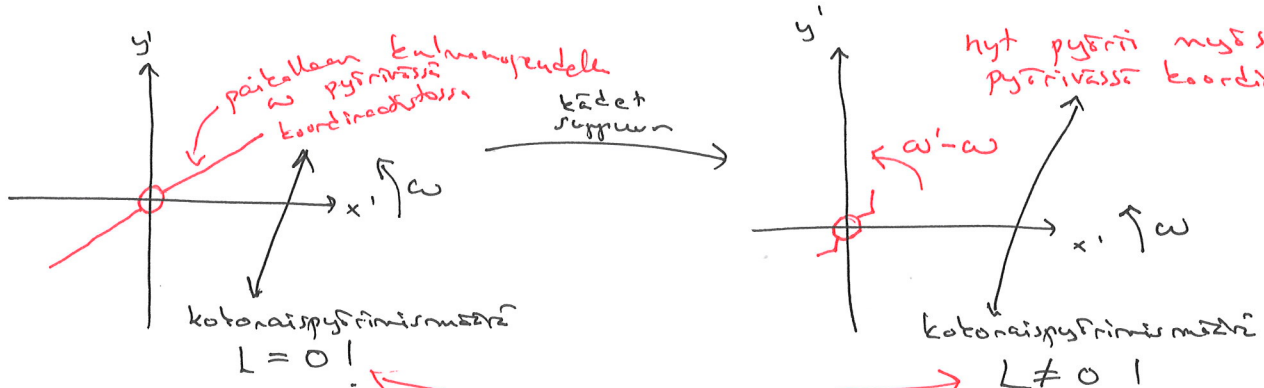 y'
paikallaan kulmanopeudella
ω pyörivässä
koordinaatistossa
x'
ω
kokonaispyörimismäärä
L = 0 !
kädet
suppuun
y'
nyt pyörii myös
pyörivässä koordi
ω'-ω
x'
ω
kokonaispyörimismäärä
L ≠ 0 !